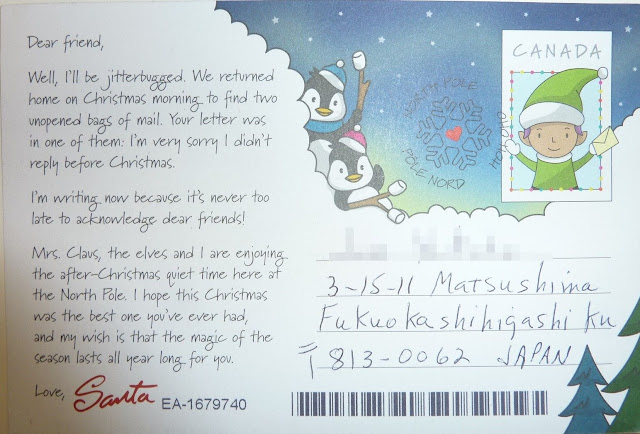 Dear friend,
Well, I'll be jitterbugged. We returned
home on Christmas morning to find two
unopened bags of mail. Your letter was
in one of them: I'm very sorry I didn't
reply before Christmas.
I'm writing now because it's never too
late to acknowledge dear friends!
Mrs. Claus, the elves and I are enjoying
the after-Christmas quiet time here at
the North Pole. I hope this Christmas
was the best one you've ever had,
and my wish is that the magic of the
season lasts all year long for you.
Love, Santa EA-1679740
NORTH POLE
PÔLE NORD
HOH OHO
CANADA
3-15-11 Matsushima
Fukuokashihigashi ku
〒813-0062 JAPAN